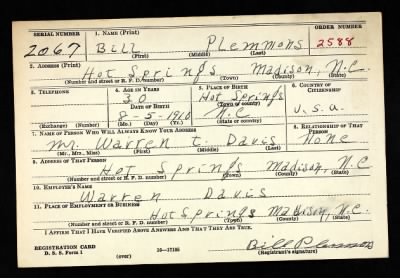 SERIAL NUMBER 1. NAME (Print) ORDER NUMBER
2067 Bill Plemmons 2588
(First) (Middle) (Last)
2. ADDRESS (Print)
Hot Springs Madison, N.C.
(Number and street or R. F. D. number) (Town) (County) (State)
3. TELEPHONE 4. AGE IN YEARS 5. PLACE OF BIRTH 6. COUNTRY OF CITIZENSHIP
30 Hot Springs
DATE OF BIRTH (Town or county)
8-5-1910 N.C U.S.A.
(Exchange) (Number) (Mo.) (Day) (Yr.) (State or country)
7. NAME OF PERSON WHO WILL ALWAYS KNOW YOUR ADDRESS 8. RELATIONSHIP OF THAT PERSON
Mr. Warren t Davis None
(Mr., Mrs., Miss) (First) (Middle) (Last)
9. ADDRESS OF THAT PERSON
Hot Springs Madison, N.C
(Number and street or R. F. D. number) (Town) (County) (State)
10. EMPLOYER'S NAME
Warren Davis
11. PLACE OF EMPLOYMENT OR BUSINESS
Hot Springs Madison, N.C.
(Number and street or R. F. D. number) (Town) (County) (State)
I AFFIRM THAT I HAVE VERIFIED ABOVE ANSWERS AND THAT THEY ARE TRUE.
REGISTRATION CARD Bill Plemmons
D. S. S. Form 1 (over) 16—17105 (Registrant's signature)